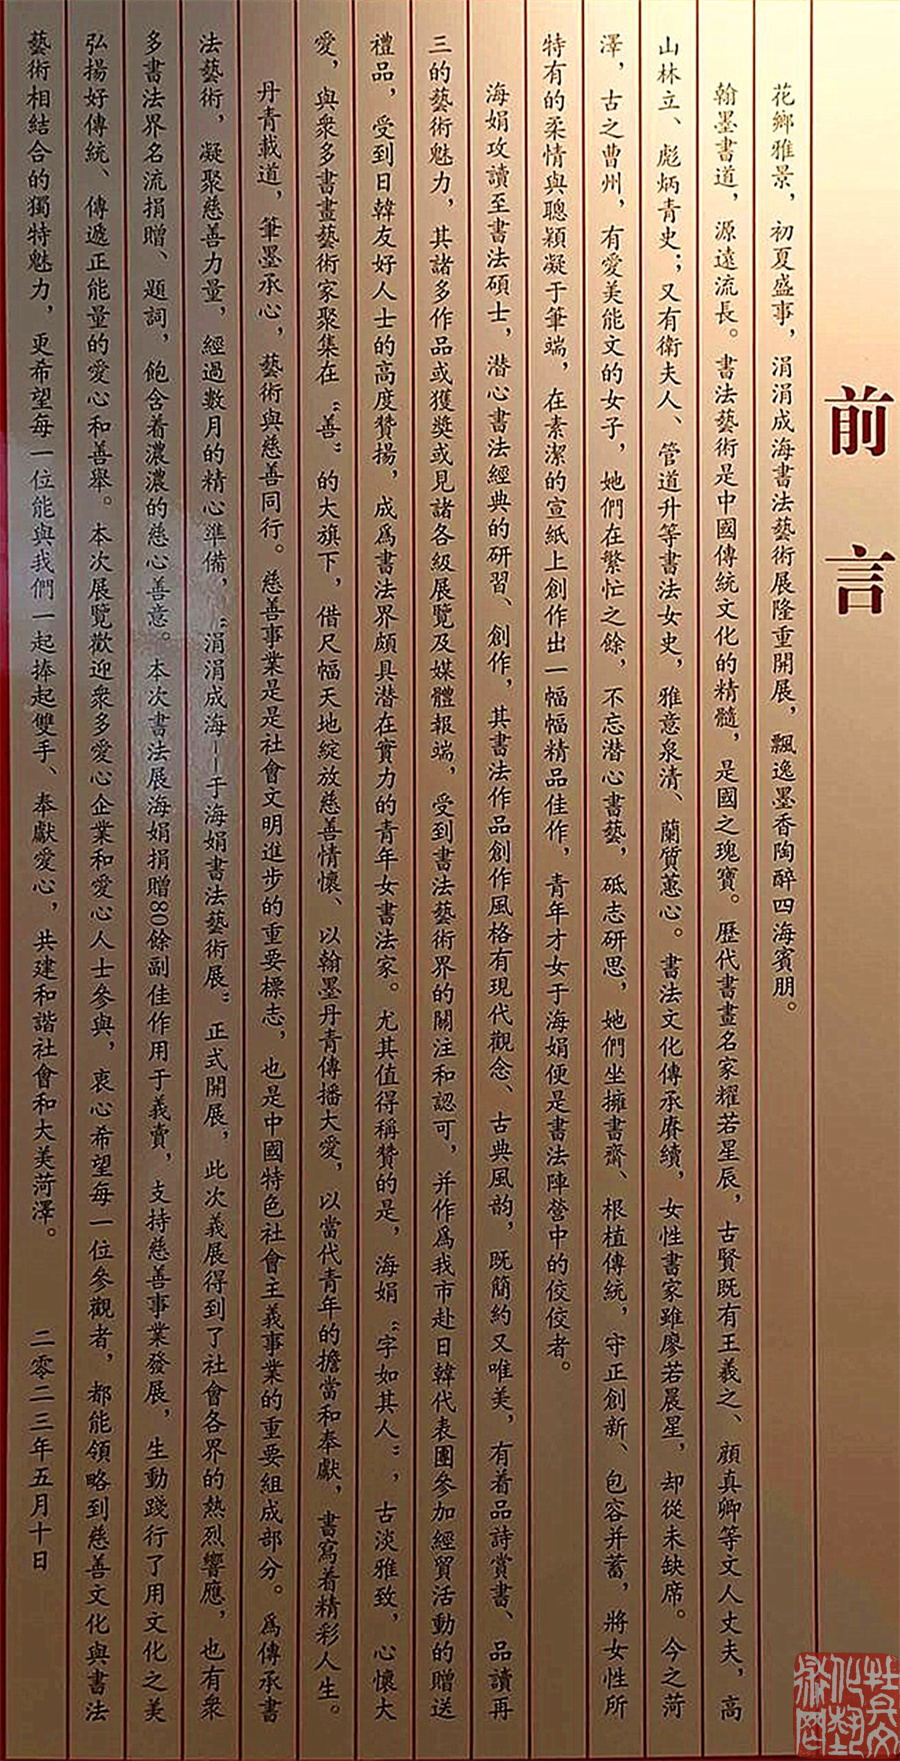 前言
花鄉雅景，初夏盛事，涓涓成海書法藝術展隆重開展，飄逸墨香陶醉四海賓朋。
翰墨書道，源遠流長。書法藝術是中國傳統文化的精髓，是國之瑰寶。歷代書畫名家耀若星辰，古賢既有王羲之、顔真卿等文人丈夫，高
山林立、彪炳青史；又有衛夫人、管道升等書法女史，雅意泉清、蘭質蕙心。書法文化傳承賡續，女性書家雖廖若晨星，却從未缺席。今之菏
澤，古之曹州，有愛美能文的女子，她們在繁忙之餘，不忘潜心書藝，砥志研思，她們坐擁書齋、根植傳統，守正創新、包容并蓄，將女性所
特有的柔情與聰穎凝于筆端，在素潔的宣紙上創作出一幅幅精品佳作，青年才女于海娟便是書法陣營中的佼佼者。
海娟攻讀至書法碩士，潜心書法經典的研習、創作，其書法作品創作風格有現代觀念、古典風韵，既簡約又唯美，有着品詩賞書、品讀再
三的藝術魅力，其諸多作品或獲獎或見諸各級展覽及媒體報端，受到書法藝術界的關注和認可，并作爲我市赴日韓代表團參加經貿活動的贈送
禮品，受到日韓友好人士的高度贊揚，成爲書法界頗具潜在實力的青年女書法家。尤其值得稱贊的是，海娟“字如其人”，古淡雅致，心懷大
愛，與衆多書畫藝術家聚集在“善”的大旗下，借尺幅天地綻放慈善情懷、以翰墨丹青傳播大愛，以當代青年的擔當和奉獻，書寫着精彩人生。
丹青載道，筆墨承心，藝術與慈善同行。慈善事業是是社會文明進步的重要標志，也是中國特色社會主義事業的重要組成部分。爲傳承書
法藝術，凝聚慈善力量，經過數月的精心準備，“涓涓成海——于海娟書法藝術展”正式開展，此次義展得到了社會各界的熱烈響應，也有衆
多書法界名流捐贈、題詞，飽含着濃濃的慈心善意。本次書法展海娟捐贈80餘副佳作用于義賣，支持慈善事業發展，生動踐行了用文化之美
弘揚好傳統、傳遞正能量的愛心和善舉。本次展覽歡迎衆多愛心企業和愛心人士參與，衷心希望每一位參觀者，都能領略到慈善文化與書法
藝術相結合的獨特魅力，更希望每一位能與我們一起捧起雙手、奉獻愛心，共建和諧社會和大美菏澤。
二零二三年五月十日